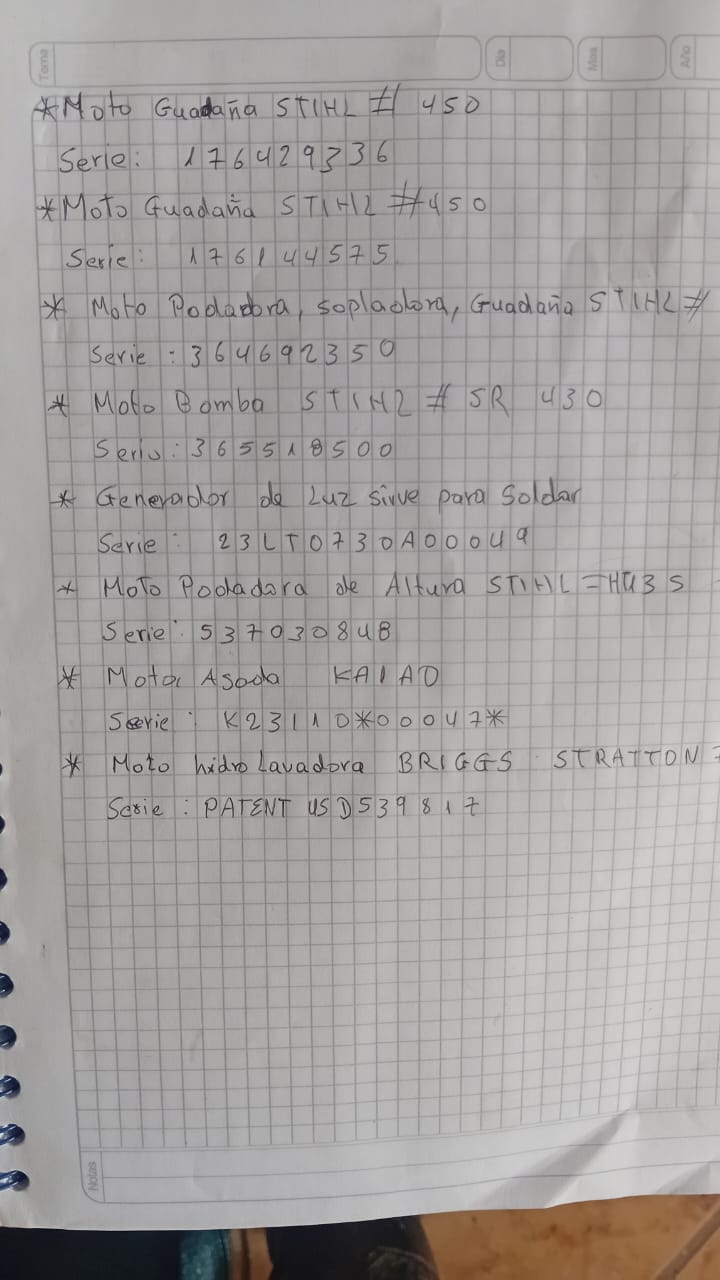 Tema
Dia
Mes
Año
*Moto Guadaña STIHL # 450
Serie: 176429336
*Moto Guadaña STIHL #450
Serie: 176144575
* Moto Podadora, sopladora, Guadaña STIHL #
Serie: 364692350
* Moto Bomba STIHL # SR 430
Serie: 365518500
* Generador de Luz sirve para Soldar
Serie: 23LT0730A00049
* Moto Podadora de Altura STIHL =
Serie: 537030848
* Motoa Asada KAIAO
Serie: K23110*00047*
* Moto hidrolavadora BRIGGS STRATTON
Serie: PATENT USD539817
Notas